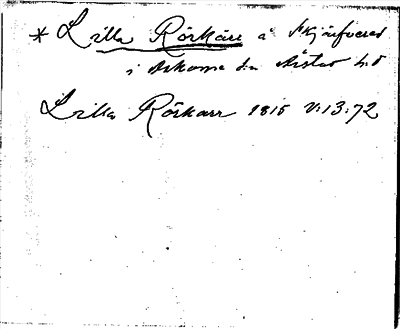 * Lilla Rörkärr å Skjärfvered
i Askome sn Årstad hd
Lilla Rörkarr 1815 V:13:72